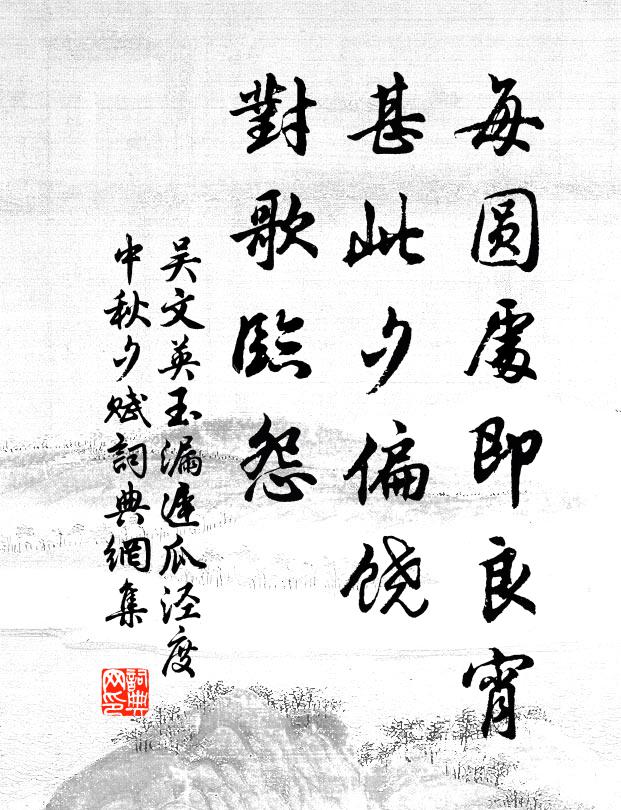 每圆處即良宵
甚此夕偏饶
對歌臨怨
吴文英玉漏遲瓜泾度
中秋夕赋詞典網集
詞典
网印